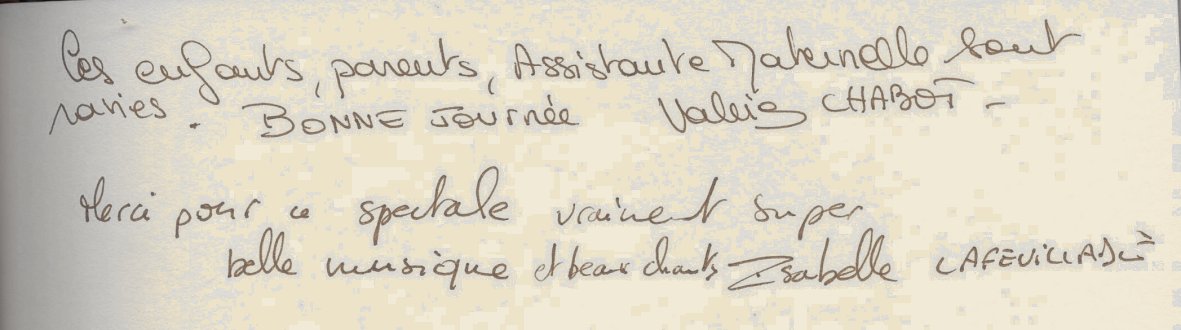 Les enfants, parents, Assistante Maternelle sont
ravies. BONNE JOURNÉE Valérie CHABOT -
Merci pour ce spectale vraiment super
belle musique et beaux chants Isabelle LAFEUILLADE